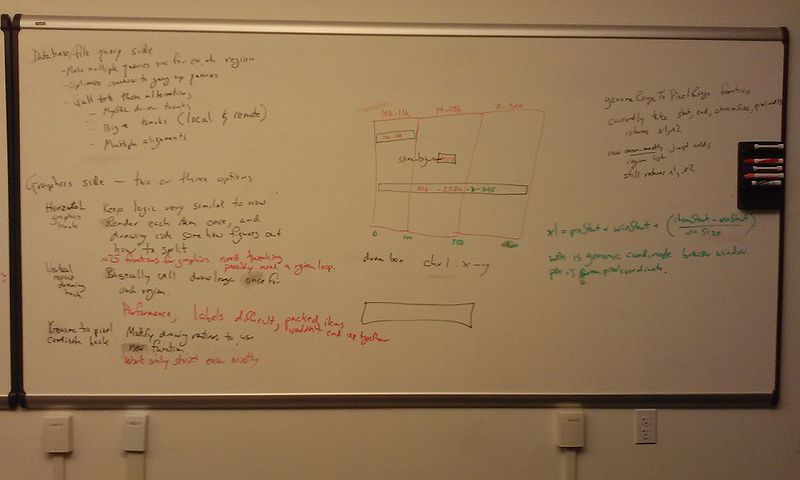 Database/file query side
- Make multiple queries one for each region
- Optimize somehow to gang up queries
- test these alternatives
- MySQL driven tracks
- Big* tracks (local & remote)
- Multiple alignments
Graphics side - two or three options
Horizontal graphics hack
Keep logic very similar to now
Render each item once, and
drawing code some how figures out
how to split
~25 functions for graphics need tweaking
possibly need a region loop.
Vertical repeat drawing hack
Basically call draw loop once for
each region.
Performance, labels difficult, packed items
wouldn't end up together
Genome to pixel
coordinate hack
Modify drawing routines to use
new function.
Work only strict exon mostly
10k-11k
0
100
250
draw box
chr1: x-y
genomeRangeToPixelRange function
currently take start, end, chromSize,
returns x1, x2
new mostly just adds
region list
still returns x1, x2
x1 = pixStart + winStart + (itemStart - winStart / win Size)
win is genomic coordinate browser window
pix is pixel coordinate.